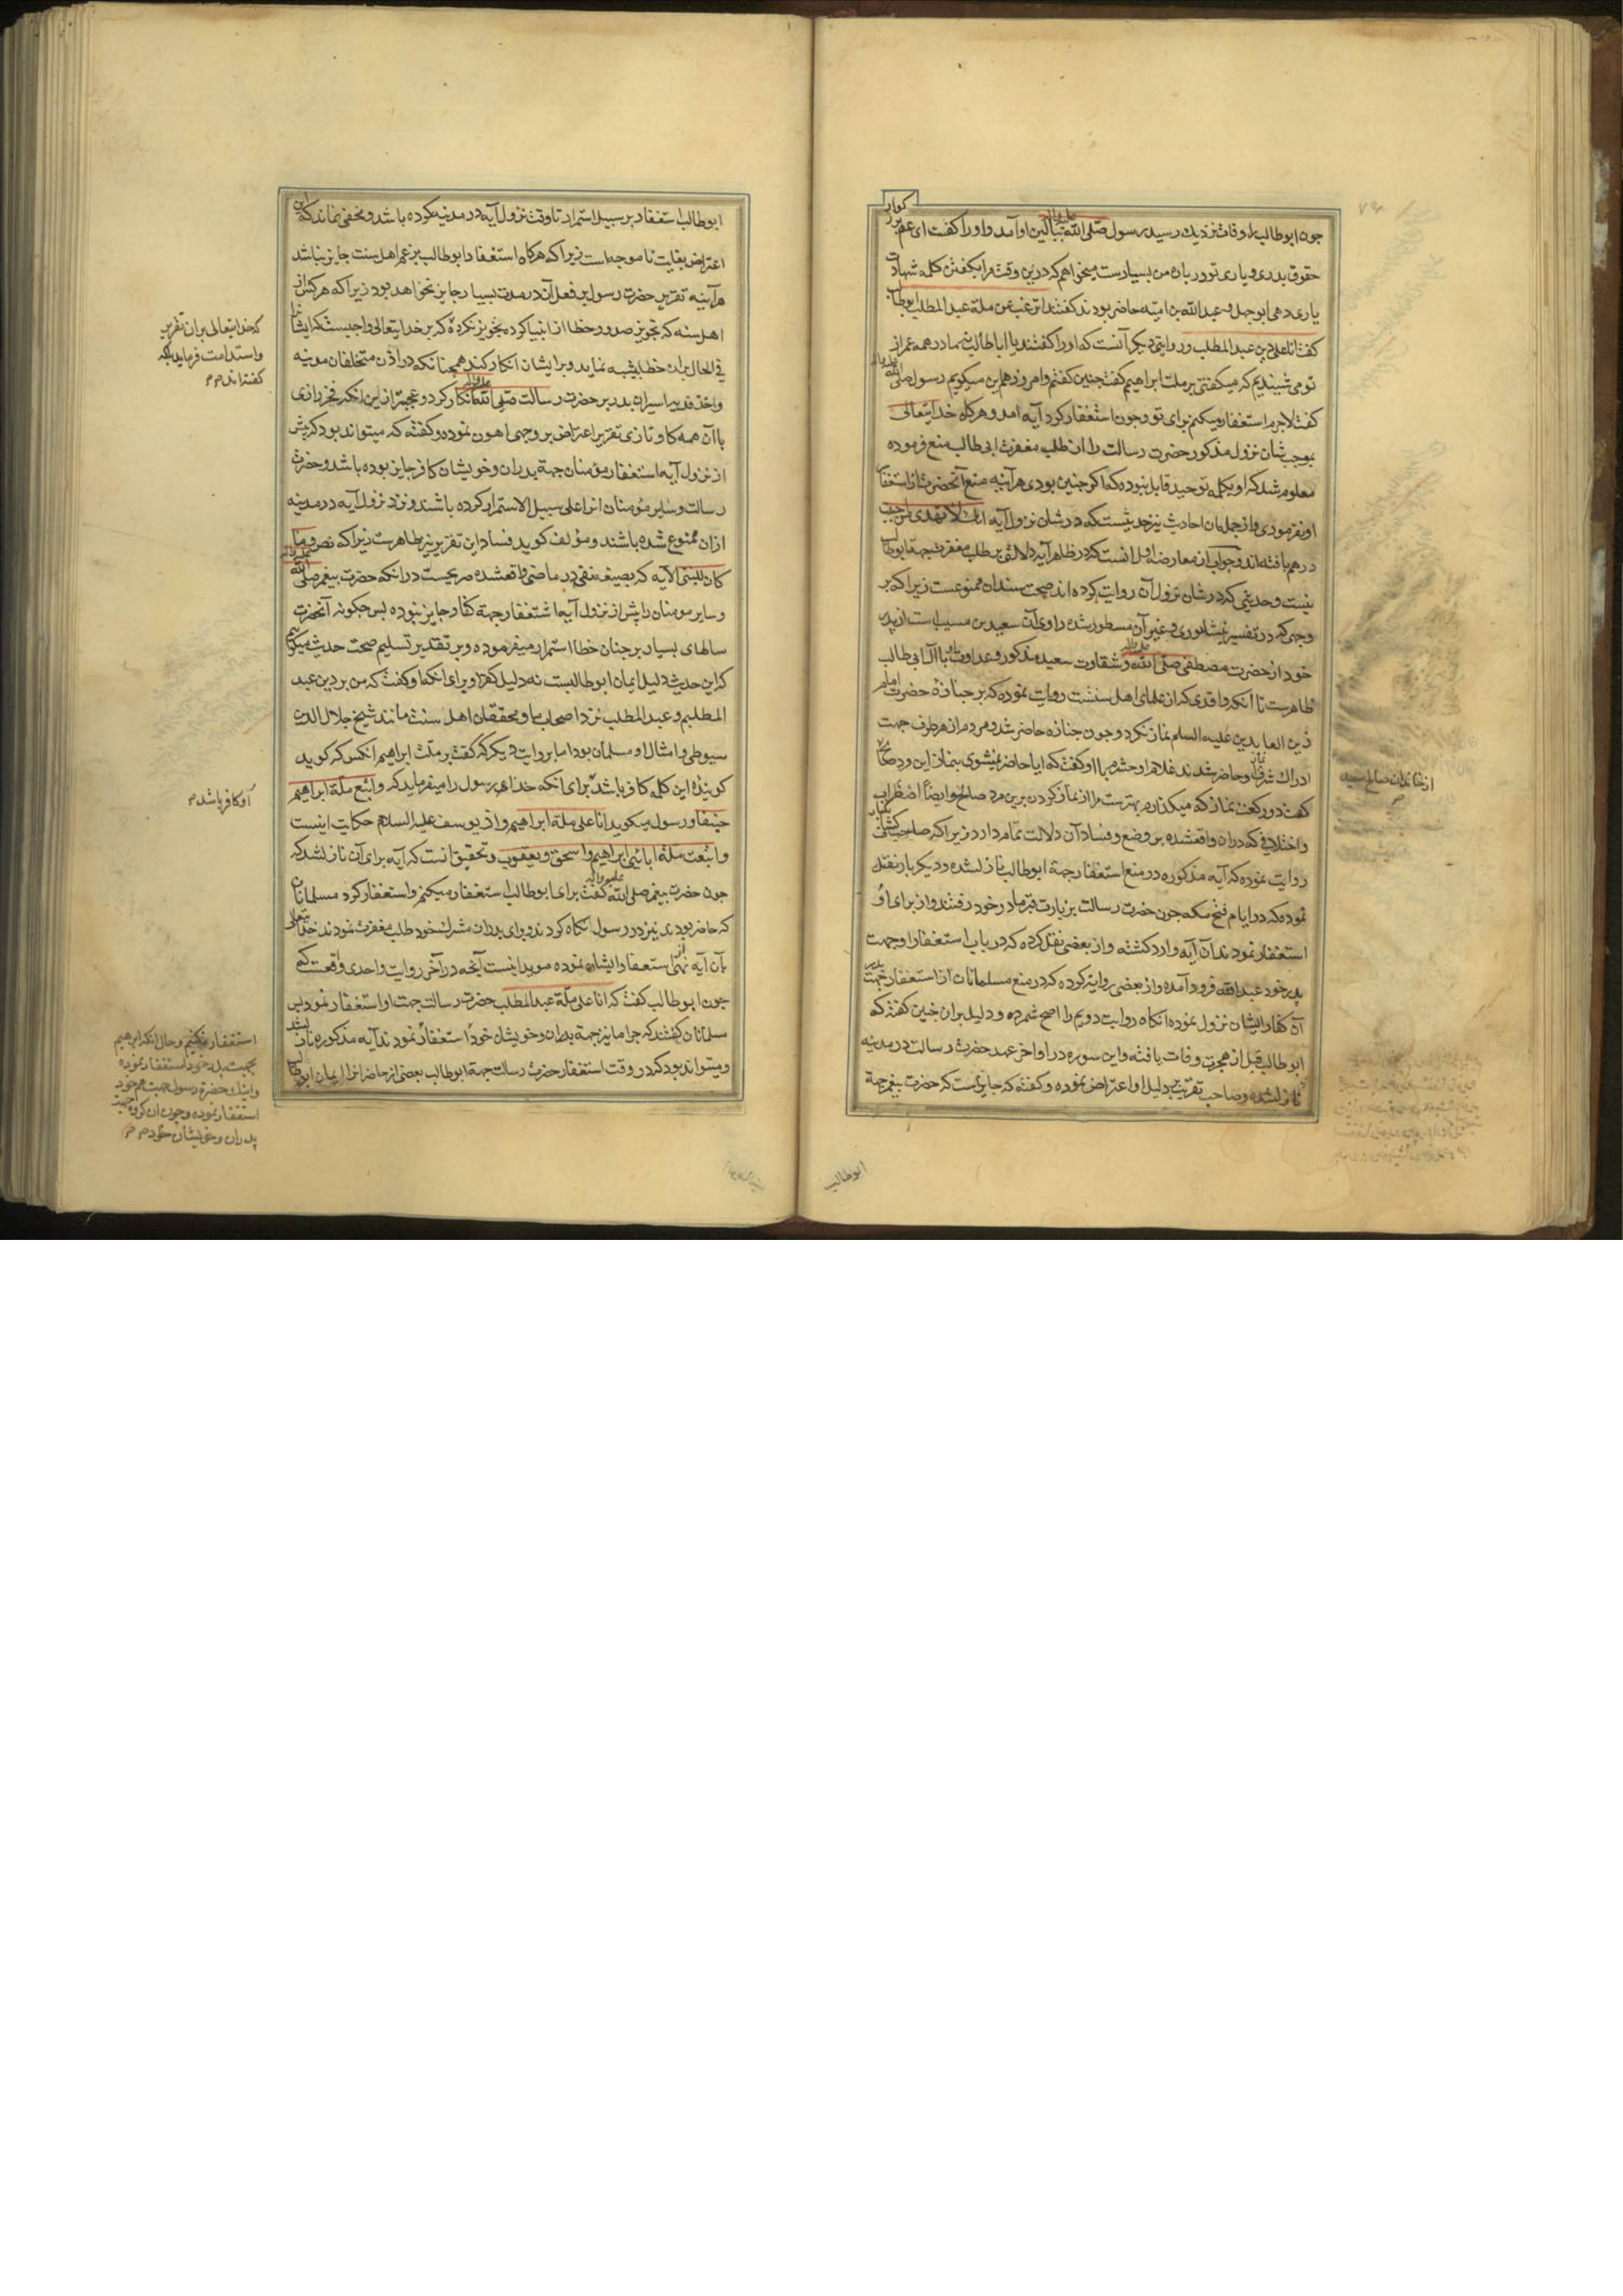 چون ابوطالب را وفات نزدیک رسید رسول صلی الله علیه واله ببالین او آمد و او را گفت ای عم بزرگوار
حقوق پدری و یاری تو در باره من بسیارست میخواهم که درین وقت مرا بگفتن کلمه شهادت
یاری دهی ابوجهل و عبدالله بن امیه حاضر بودند گفتند اترغب عن ملة عبدالمطلب ابوطالب
گفت انا علی دین عبدالمطلب و روایتی دیگر آنست که او را گفتند یا اباطالب نه ما در همه عمر از
تو می شنیدیم که میگفتی بر ملت ابراهیم گفت چنین گفتم و امروز هم این میگویم رسول صلی الله علیه واله
گفت لاجرم استغفار میکنم برای تو و چون استغفار کرد آیه آمد و هرگاه خدایتعالی
بموجب شان نزول مذکور حضرت رسالت را از طلب مغفرت ابی طالب منع فرموده
معلوم شد که او بکلمه توحید قایل نبوده که اگر چنین بودی هرآینه منع آنحضرت از استغفار
او نفرمودی و از جمله ان احادیث نیز حدیثیست که در شان نزول آیه انک لا تهدی من احببت
در هم بافته اند و جواب از معارضه اول انست که در ظاهر آیه دلالتی بر طلب مغفرت جهة ابوطالب
نیست و حدیثی که در شان نزول آن روایت کرده اند صحت سند ان ممنوعست زیرا که بر
وجهی که در تفسیر نیشابوری و غیر آن مسطور شده راوی آن سعید بن مسیب است از پدر
خود از حضرت مصطفی صلی الله علیه واله و شقاوت سعید مذکور و عداوت او باال ابی طالب
ظاهرست تا آنکه واقدی که از علمای اهل سنت روایت نموده که بر جنازهٔ حضرت امام
زین العابدین علیه السلام نماز نکرد و چون جنازه حاضر شد و مردم از هر طرف جهت
ادراک شرف نماز او حاضر شدند غلام او حشرم باو گفت که ایا حاضر نمیشوی بنماز این مرد صالح
گفت دو رکعت نماز که میگذارم بهترست مرا از نماز کردن برین مرد صالح و ایضاً اضطراب
و اختلافی که دران واقعشده بر وضع و فساد آن دلالت تمام دارد زیرا که صاحب کشاف یکبار
روایت نموده که آیه مذکوره در منع استغفار جهة ابوطالب نازلشده و دیگر بار نقل
نموده که در ایام فتح مکه چون حضرت رسالت بزیارت قبر مادر خود رفتند و از برای او
استغفار نمودند آن آیه وارد گشته و از بعضی نقل کرده که در باب استغفار او جهت
پدر خود عبدالله فرود آمده و از بعضی روایت کرده که در منع مسلمانان از استغفار جهت پدر
آن کفار ایشان نزول نموده انکاه روایت دویم را اصح شمرده و دلیل بران چنین گفته که
ابوطالب قبل از هجرت وفات یافته و این سوره در اواخر عهد حضرت رسالت در مدینه
نازلشده و صاحب تقریب بدلیل او اعتراض نموده و گفته که جایزست که حضرت پیغمبر جهة
ابوطالب
از خاندان صالح
ابوطالب استغفار بر سبیل استمرار تا وقت نزول آیه در مدینه کرده باشد و مخفی نماند که این
اعتراض بغایت ناموجه است زیرا که هرگاه استغفار ابوطالب بزعم اهل سنت جایز نباشد
هرآینه تقریر حضرت رسول بر فعل آن در مدت بسیار جایز نخواهد بود زیرا که هر کس از
اهل سنه که تجویز صدور خطا از انبیا کرده تجویز نکرده که بر خدایتعالی واجبست که ایشانرا
فی الحال بران خطا تنبیه نماید و برایشان انکار کند همچنانکه در اذن متخلفان موتیه
و اخذ فدیه اسیران بدر بر حضرت رسالت صلی الله علیه واله انکار کرد و عجبتر از این انکه فخر رازی
باآن همه کاو و تازی تقریر اعتراض بر وجهی اهون نموده و گفته که میتواند بود که پیش
از نزول آیه استغفار مؤمنان جهة پدران و خویشان کافر جایز بوده باشد و حضرت
رسالت و سایر مؤمنان انرا علی سبیل الاستمرار کرده باشند و نزد نزول آیه در مدینه
ازان ممنوع شده باشند و مؤلف کوید فساد این تقریر نیز ظاهرست زیرا که نص و ما
کان للنبی الآیه که بصیغه نفی در ماضی واقعشده صریحست در انکه حضرت پیغمبر صلی الله علیه واله
و سایر مومنان را پیش از نزول آیه استغفار جهة کفار جایز نبوده پس چکونه آنحضرت
سالهای بسیار بر چنان خطا استمرار میفرموده و بر تقدیر تسلیم صحت حدیث میکوئیم
که این حدیث دلیل ایمان ابوطالبست نه دلیل کفر او برای انکه او گفت که من بر دین عبد
المطلبم و عبدالمطلب نزد اصحاب ما و محققان اهل سنت مانند شیخ جلال الدین
سیوطی و امثال او مسلمان بود اما بر روایت دیگر که گفت بر ملت ابراهیم انکس که کوید
کوینده این کلمه کافر باشد برای انکه خدای رسول را میفرماید که و اتبع ملة ابراهیم
حنیفا و رسول میکوید انا علی ملة ابراهیم و از یوسف علیه السلام حکایت اینست
و اتبعت ملة ابائی ابراهیم و اسحق و یعقوب و تحقیق انست که آیه برای آن نازلشد که
چون حضرت پیغمبر صلی الله علیه واله گفت برای ابوطالب استغفار میکنم و استغفار کرد مسلمانان
که حاضر بودند نیز در رسول نکاه کردند و برای پدران مشرک خود طلب مغفرت نمودند خدایتعالی
بآن آیه نهی از استغفار ایشان نموده موید اینست آنچه در آخر روایت واحدی واقعست که
چون ابوطالب گفت که انا علی ملة عبدالمطلب حضرت رسالت جهت او استغفار نمود پس
مسلمانان گفتند که چرا ما نیز جهة پدران و خویشان خود استغفار نمودند آیه مذکوره نازلشد
و میتواند بود که در وقت استغفار حضرت رسالت جهة ابوطالب بعضی از حاضران را ایمان ابوطالب
که خدایتعالی بران تقریر
و استدامت فرماید بلکه
گفته اند م م
او کافر باشد م
استغفار نکنیم و حال انکه ابراهیم
بجهت پدر خود استغفار نموده
و اینک حضرة رسول جهت عم خود
استغفار نموده و چون ان گروه جهت
پدران و خویشان خود م م